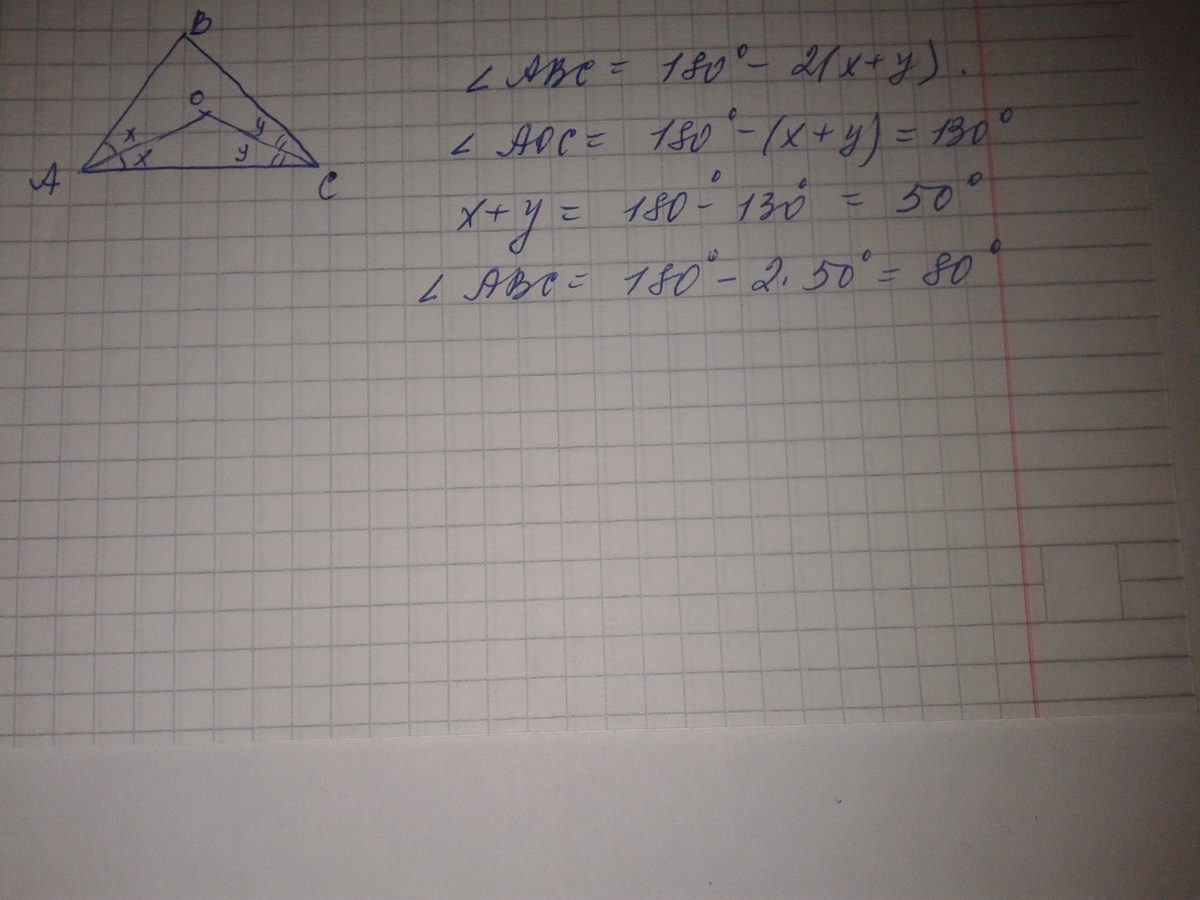 B
O
x
x
y
y
A
C
∠ ABC = 180° - 2(x+y).
∠ AOC = 180° - (x+y) = 130°
x+y = 180° - 130° = 50°
∠ ABC = 180° - 2. 50° = 80°